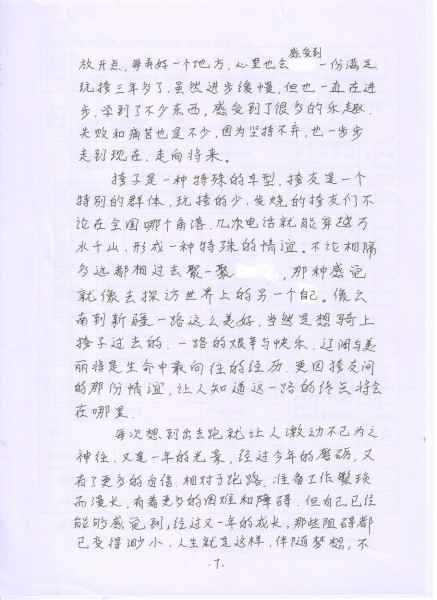 感受到
放开点，每弄好一个地方，心里也会 一份满足
玩挎三年多了，虽然进步缓慢，但也一直在进
步，学到了不少东西，感受到了很多的乐趣，
失败和痛苦也是不少，因为坚持不弃，也一步步
走到现在，走向将来。
挎子是一种特殊的车型，挎友是一个
特别的群体，玩挎的少，发烧的挎友们不
论在全国哪个角落，几次电话就能穿越万
水千山，形成一种特殊的情谊。不论相隔
多远都相过去聚一聚 ，那种感觉
就像去探访世界上的另一个自己。像云
南到新疆一路这么美好，当然是想骑上
挎子过去的，一路的艰辛与快乐，辽阔与美
丽将是生命中最向往的经历，更因挎友间
的那份情谊，让人知道这一路的终点将会
在哪里
每次想到出去跑就让人激动不已为之
神往，又是一年的光景，经过今年的磨砺，又
有了更多的自信，相对于跑路，准备工作繁琐
而漫长，有着更多的困难和障碍，但自己已经
能够感觉到，经过又一年的成长，那些阻碍都
已变得渺小，人生就是这样，伴随梦想，不
·7·